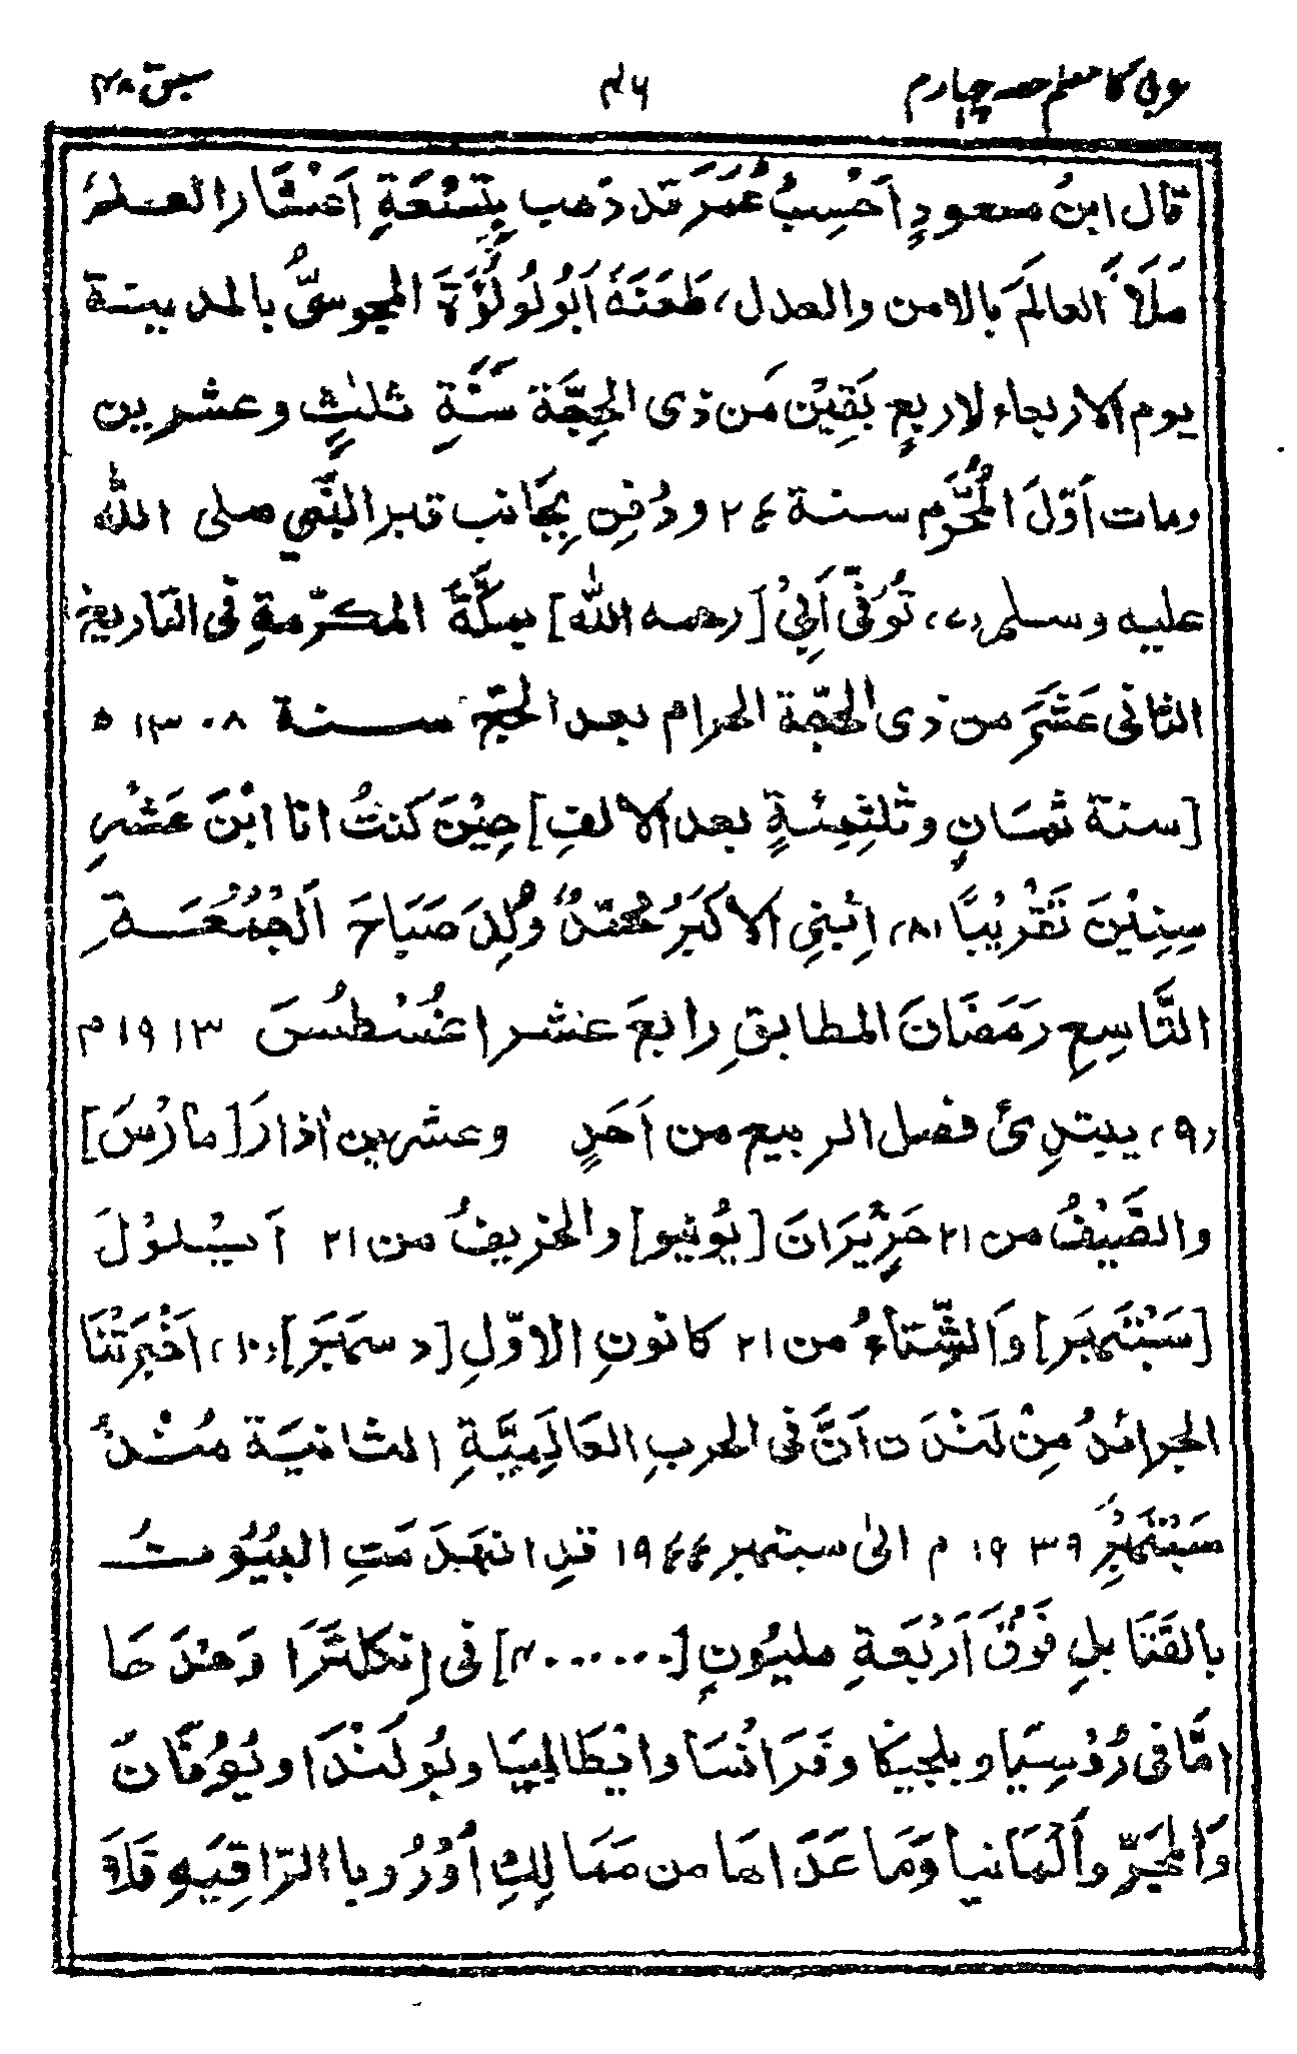 عربی کا معلم حصہ چہارم ۴۶ سبق ۴۸
قال ابنُ مسعودٍ اَحْسِبُ عُمَرَ قد ذهب بِتِسْعَةِ اَعْشَار العلم
مَلَأَ العالَمَ بالامن والعدل، طَعَنَهُ اَبُو لُولُؤَةَ المجوسیُّ بالمدينة
يوم الاربعاء لاربعٍ بَقِيْنَ مَن ذی الحِجَّة سَنَةِ ثلٰثٍ وعشرين
ومات اَوّلَ الْمُحَرَّم سنة ۲٤ ودُفِن بِجَانب قبر النَّبِي صلی الله
عليه وسلم (۷) تُوُفِّیَ اَبِیْ [رحمه الله] بمكَّةَ المكرّمةِ فی التاريخ
الثانی عَشَرَ من ذی الحِجّة الحرام بعد الحجّ سنة ۱۳۰۸ ه
[سنة ثَمَانٍ وثلٰثِمِئةٍ بعد الالفِ] حِيْنَ كنتُ انا ابْنَ عَشْرِ
سِنِيْنَ تَقْرِيْبًا (۸) اِبْنِی الاَكْبَرُ مُحمّدٌ وُلِدَ صَبَاحَ اَلْجُمُعَةِ
التَّاسِعِ رَمَضَانَ المطابقِ رابعَ عشر اغُسْطُسَ ۱۹۱۳ م
(۹) يبتدِئ فصل الربيع من اَحَدٍ وعشرين اٰذارَ [مَارْسَ]
والصَّيْفُ من ۲۱ حَزِيْرَانَ [يُونيو] والخريفُ من ۲۱ اَيْلُوْلَ
[سَبْتَمبَر] وَالشِّتاءُ من ۲۱ كانونِ الاوّلِ [دسمبَر] (۱۰) اَخْبَرَتْنَا
الجرائدُ مِنْ لَنْدَن اَنَّ فی الحربِ العَالَمِيَّةِ الثانيَة مُنْذُ
سَبْتَمْبَرِ ۱۹۳۹ م الیٰ سبتمبر ۱۹٤٤ قدِ انهَدَمَتِ البُيُوتُ
بالقَنَابلِ فَوْقَ اَرْبَعَةِ مليُونٍ [۴۰۰۰۰۰۰] فی اِنكلتَرَا وَحْدَهَا
امَّا فی رُوْسِيَا وبلجيكا وفَرَانْسَا وايْطَالِيَا وبُولَنْدَا ويُونَانَ
وَالمَجَرّ واَلْمَانيا وَمَا عَدَ اهَا من مَمَا لِكِ اُوْرُوبا الرّاقِيَهِ فَلَا